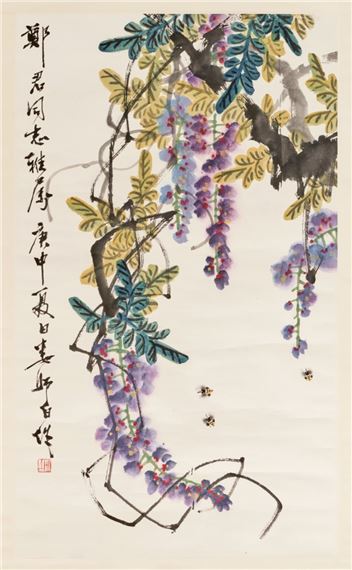 鄭君同志雅属庚申夏日婁師白作